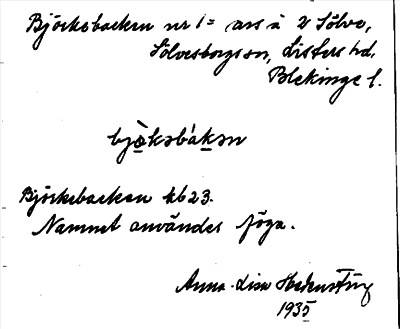 Björkebacken nr 1 = ars à 2 Sölve,
Sölvesborgs sn, Listers hd,
Blekinge l.
bjö̀kəbákən
Björkebacken kb 23.
Namnet användes föga.
Anna-Lisa
1935